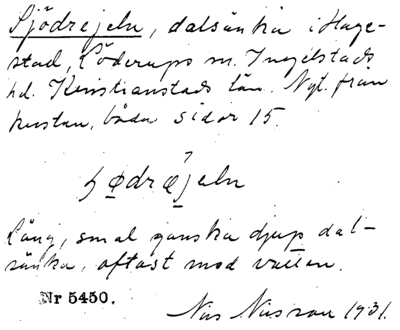 Sjödrejeln, dalsänka i Hage-
stad, Löderups sn. Ingelstads
hd. Kristianstads län. Nyt. från
kustan, båda sidor 15.
ɧødræjeln
Lång, smal ganska djup dal-
sänka, oftast med vatten.
Nr 5450.
Nils Nilsson 1931.